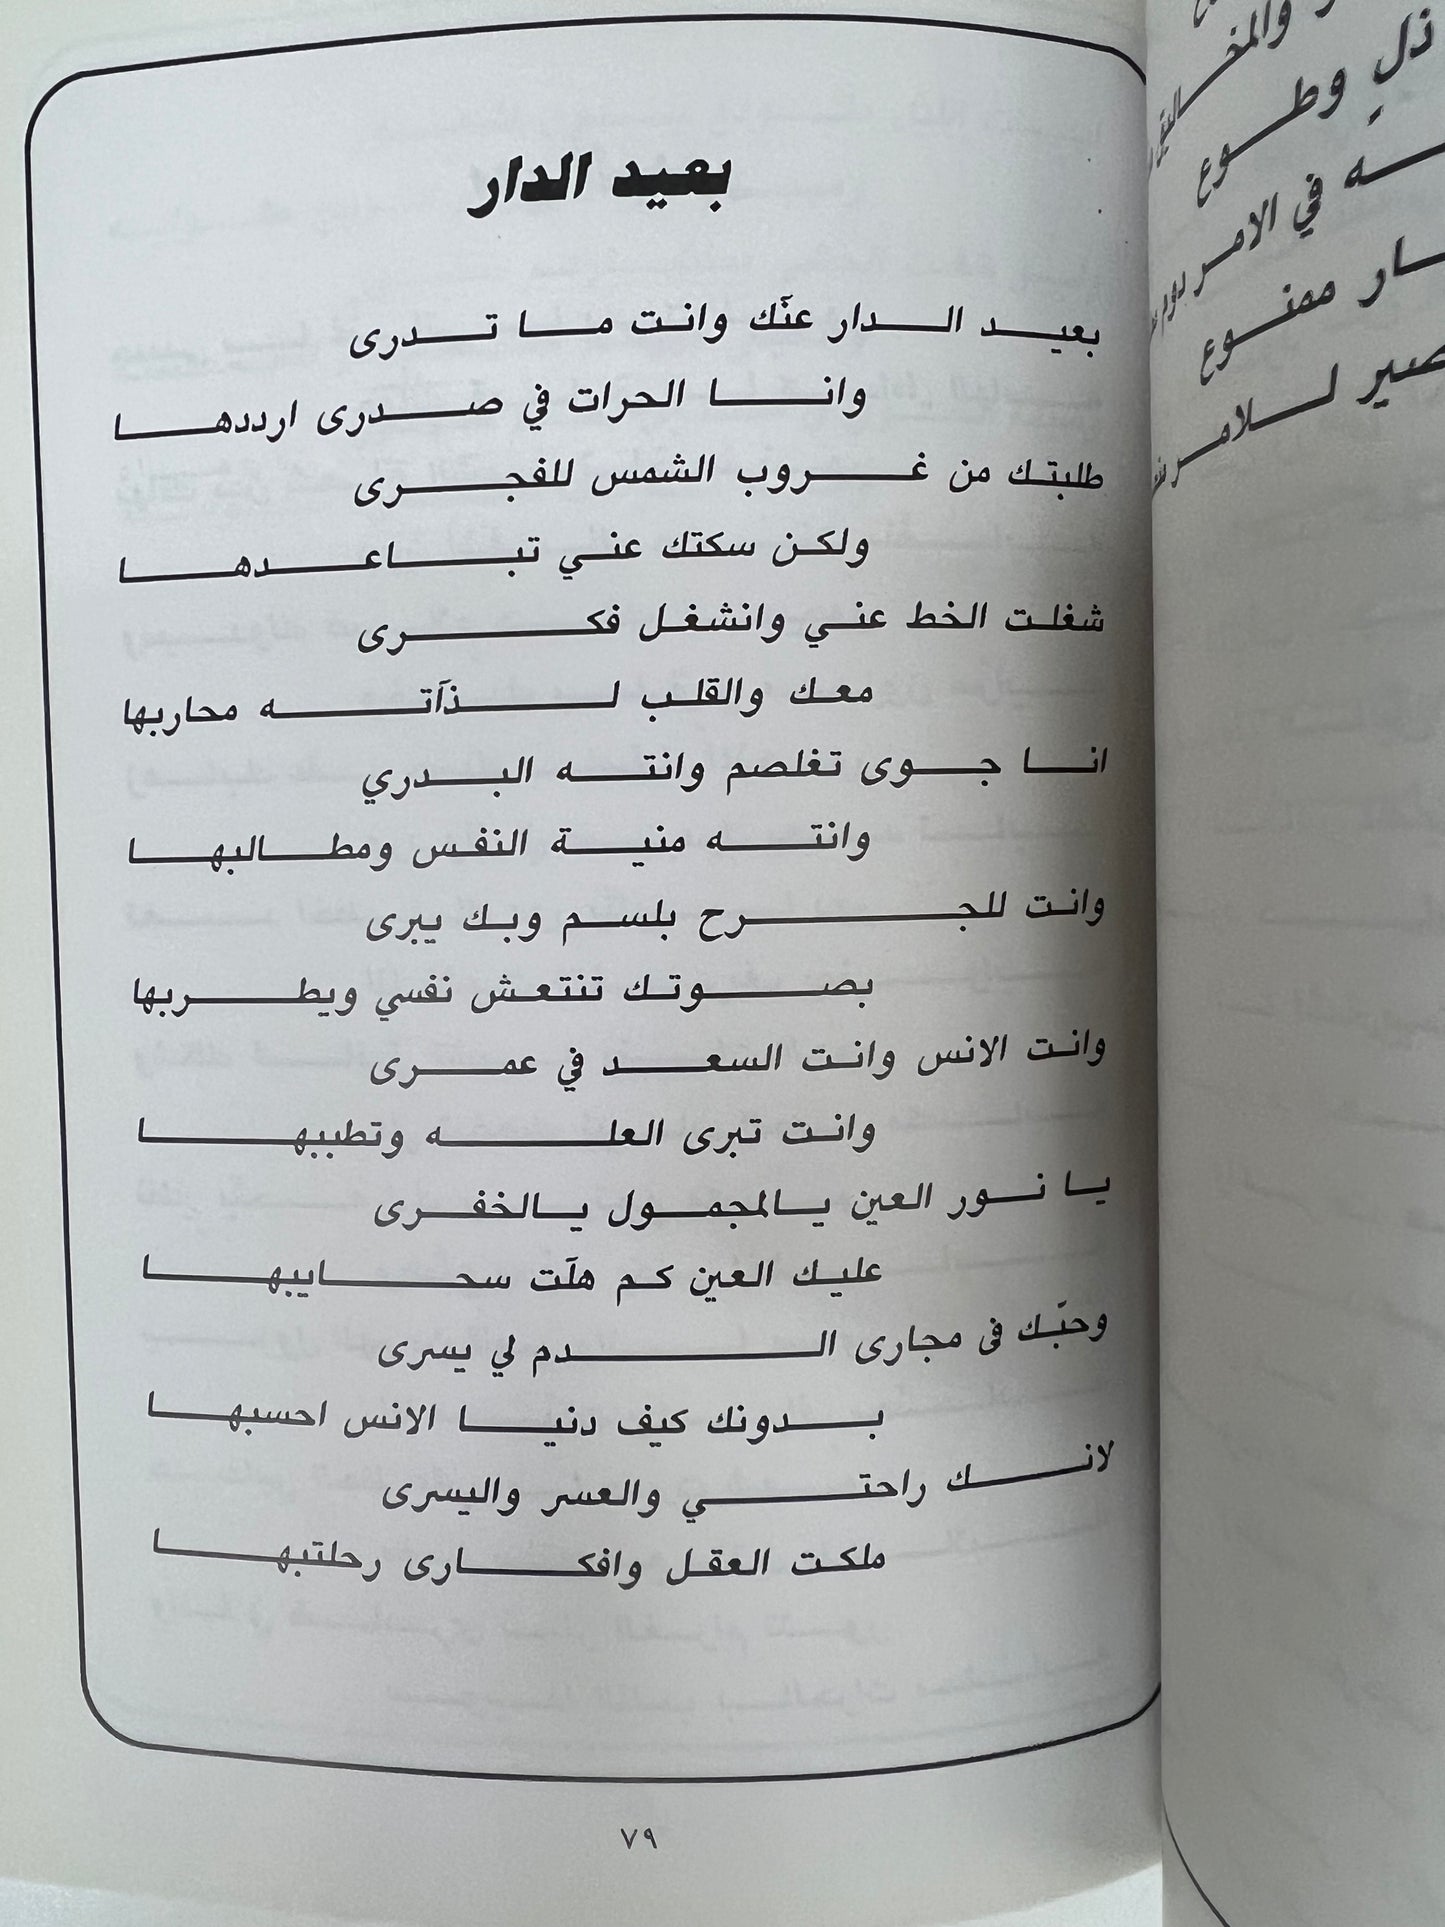 بعيد الدار
بعيد الدار عنّك وانت ما تدرى
وانا الحرات في صدرى ارددها
طلبتك من غروب الشمس للفجرى
ولكن سكتك عني تباعدها
شغلت الخط عني وانشغل فكرى
معك والقلب لذآته محاربها
انا جوى تغلصم وانته البدري
وانته منية النفس ومطالبها
وانت للجرح بلسم وبك يبرى
بصوتك تنتعش نفسي ويطربها
وانت الانس وانت السعد في عمرى
وانت تبرى العله وتطببها
يا نور العين يالمجمول يالخفرى
عليك العين كم هلّت سحاييبها
وحبّك فى مجارى الدم لي يسرى
بدونك كيف دنيا الانس احسبها
لانك راحتي والعسر واليسرى
ملكت العقل وافكارى رحلتبها
٧٩
والمخ
ذلٍ وطوع
ه في الامر
ار ممنوع
صير لـلامر